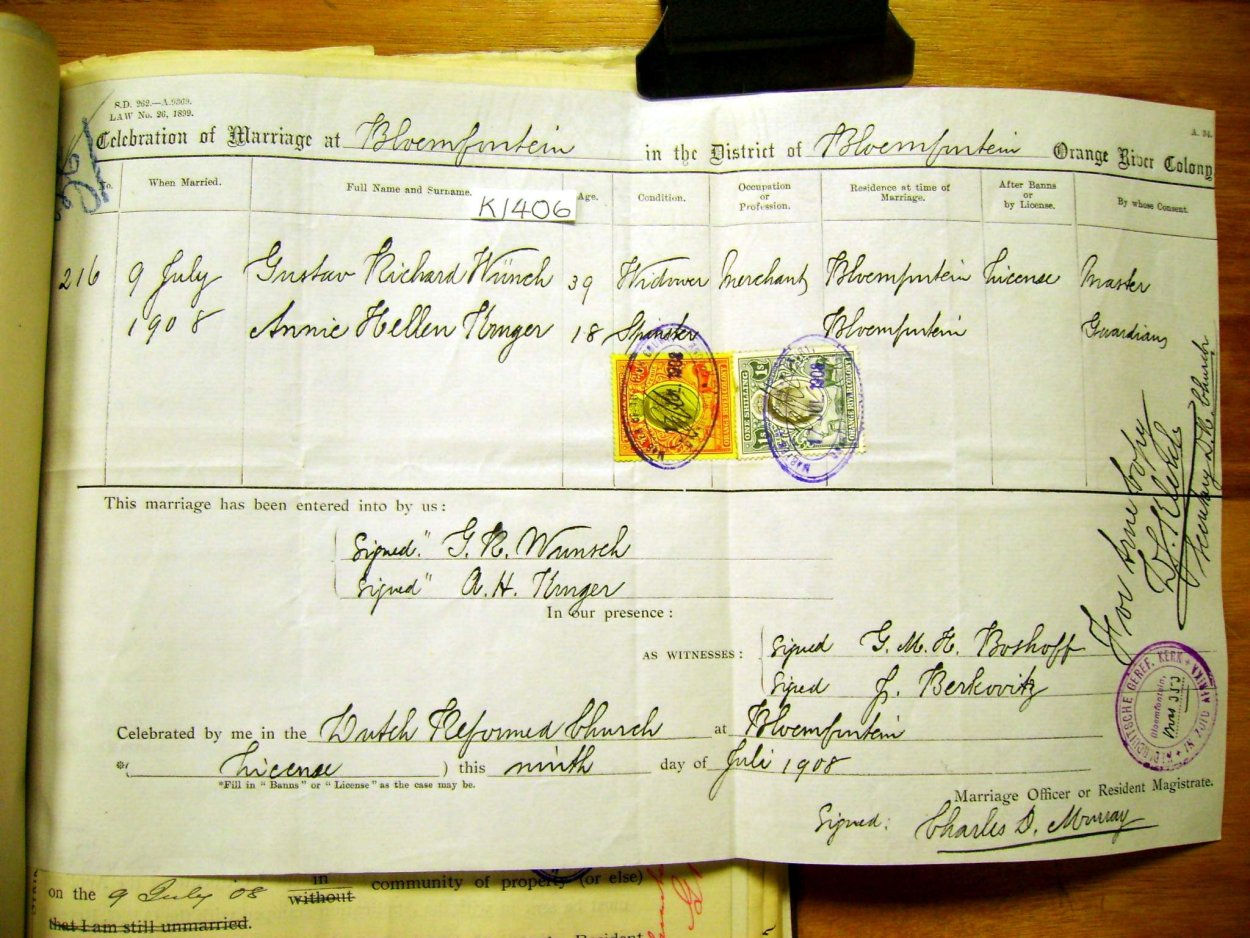 S.D. 262.—A.9369.
LAW No. 26, 1899.
A. 34.
Celebration of Marriage at Bloemfontein in the District of Bloemfontein Orange River Colony
No. When Married. Full Name and Surname. Age. Condition. Occupation or Profession. Residence at time of Marriage. After Banns or by License. By whose Consent.
K1406
216 9 July Gustav Richard Wünch 39 Widower Merchant Bloemfontein License Master
1908 Annie Hellen Kruger 18 Spinster Bloemfontein Guardians
ONE SHILLING 1s ORANGE RIVER COLONY
This marriage has been entered into by us:
Signed." G. R. Wunsch
Signed" A. H. Kruger
In our presence:
AS WITNESSES: Signed G. M. H. Boshoff
Signed J. Berkovitz
Celebrated by me in the Dutch Reformed Church at Bloemfontein
*( License ) this ninth day of Juli 1908
*Fill in "Banns" or "License" as the case may be.
Marriage Officer or Resident Magistrate.
Signed: Charles D. Murray
For true copy
Church
Bloemfontein,
on the 9 July '08 in without community of property (or else)
that I am still unmarried.
Resident